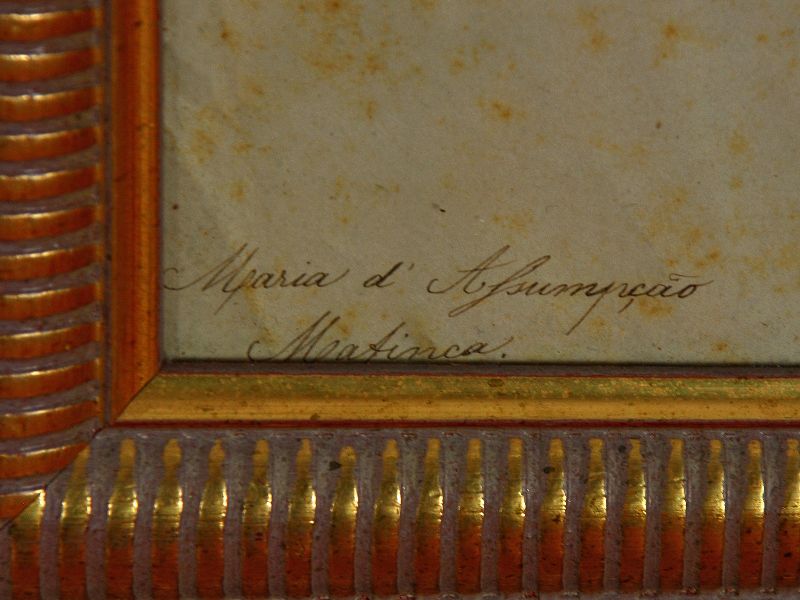 Maria d' Assumpção
Matinca.